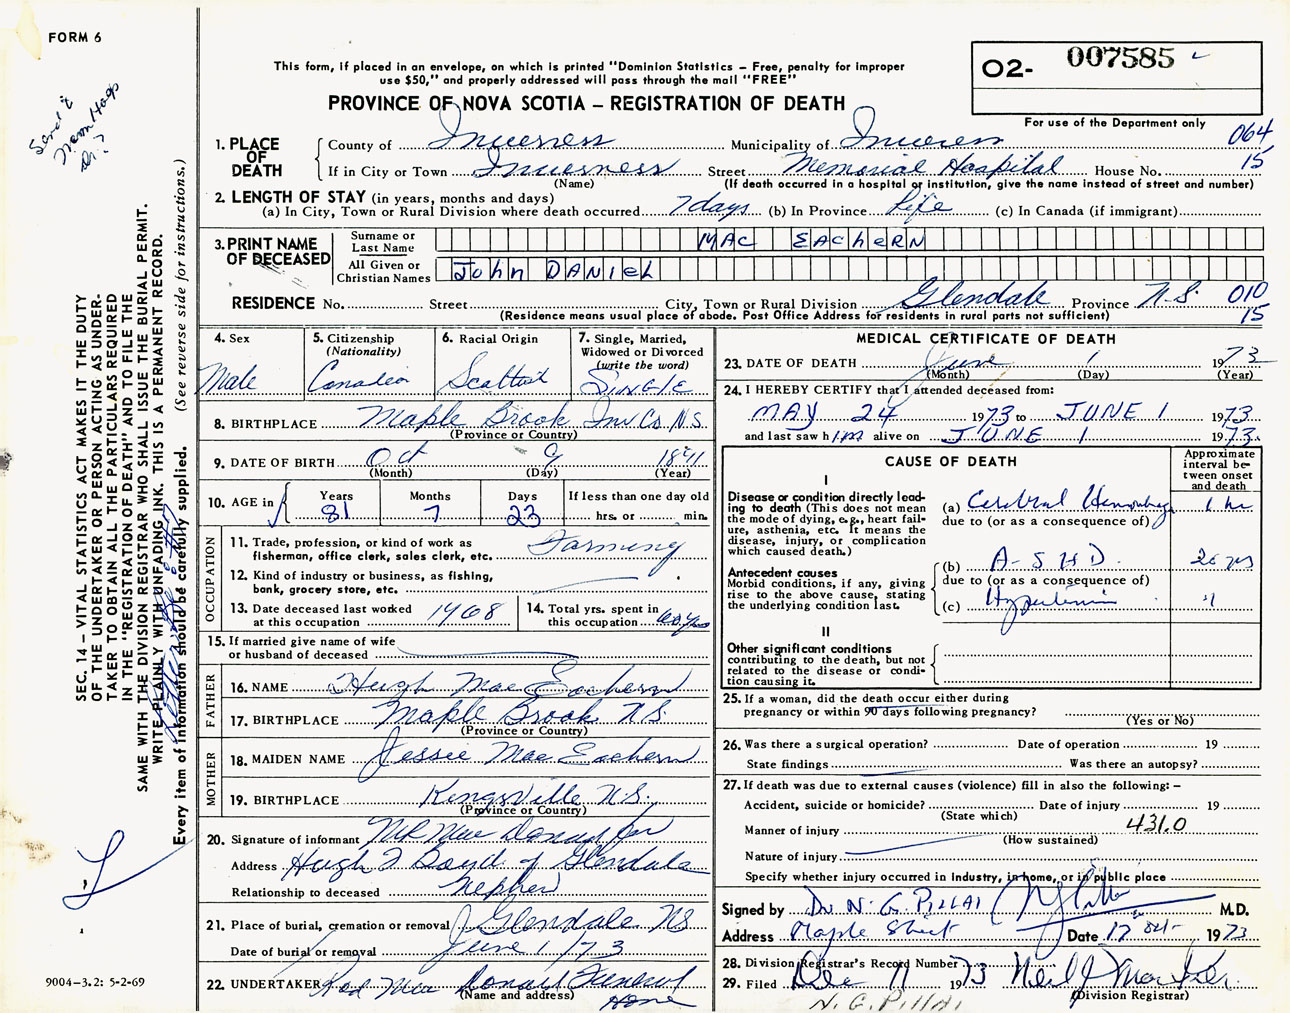 FORM 6
This form, if placed in an envelope, on which is printed "Dominion Statistics – Free, penalty for improper
use $50," and properly addressed will pass through the mail "FREE"
O2- 007585
PROVINCE OF NOVA SCOTIA – REGISTRATION OF DEATH
For use of the Department only
Send to
SEC. 14 – VITAL STATISTICS ACT MAKES IT THE DUTY
OF THE UNDERTAKER OR PERSON ACTING AS UNDER-
TAKER TO OBTAIN ALL THE PARTICULARS REQUIRED
IN THE "REGISTRATION OF DEATH" AND TO FILE THE
SAME WITH THE DIVISION REGISTRAR WHO SHALL ISSUE THE BURIAL PERMIT.
WRITE PLAINLY WITH UNFADING INK. THIS IS A PERMANENT RECORD.
Every item of information should be carefully supplied. (See reverse side for instructions.)
9004–3.2: 5-2-69
1. PLACE OF DEATH
County of Inverness Municipality of Inverness 064
If in City or Town Inverness Street Memorial Hospital House No. 15
(Name) (If death occurred in a hospital or institution, give the name instead of street and number)
2. LENGTH OF STAY (in years, months and days)
(a) In City, Town or Rural Division where death occurred 7 days (b) In Province Life (c) In Canada (if immigrant)
3. PRINT NAME OF DECEASED
Surname or Last Name MAC EACHERN
All Given or Christian Names John DANIEL
RESIDENCE No. Street City, Town or Rural Division Glendale Province N.S. 010
(Residence means usual place of abode. Post Office Address for residents in rural parts not sufficient) 15
4. Sex
Male
5. Citizenship
(Nationality)
Canadian
6. Racial Origin
Scottish
7. Single, Married,
Widowed or Divorced
(write the word)
SINGLE
8. BIRTHPLACE Maple Brook Inv. Co. N.S.
(Province or Country)
9. DATE OF BIRTH Oct 9 1891
(Month) (Day) (Year)
10. AGE in
Years Months Days If less than one day old
81 7 23 hrs. or min.
OCCUPATION
11. Trade, profession, or kind of work as
fisherman, office clerk, sales clerk, etc. Farming
12. Kind of industry or business, as fishing,
bank, grocery store, etc.
13. Date deceased last worked
at this occupation 1968
14. Total yrs. spent in
this occupation 60 yrs
15. If married give name of wife
or husband of deceased
FATHER
16. NAME Hugh Mac Eachern
17. BIRTHPLACE Maple Brook N.S.
(Province or Country)
MOTHER
18. MAIDEN NAME Jessie Mac Eachern
19. BIRTHPLACE Kingsville N.S.
(Province or Country)
20. Signature of informant Mac Donald for
Address Hugh F Boyd of Glendale
Relationship to deceased Nephew
21. Place of burial, cremation or removal Glendale NS
Date of burial or removal June 1/73
22. UNDERTAKER Rod Mac Donald Funeral
(Name and address) Home
MEDICAL CERTIFICATE OF DEATH
23. DATE OF DEATH June 1 1973
(Month) (Day) (Year)
24. I HEREBY CERTIFY that I attended deceased from:
MAY 24 1973 to JUNE 1 1973
and last saw him alive on JUNE 1 1973.
CAUSE OF DEATH
Approximate
interval be-
tween onset
and death
I
Disease or condition directly lead-
ing to death (This does not mean
the mode of dying, e.g., heart fail-
ure, asthenia, etc. It means the
disease, injury, or complication
which caused death.)
(a) Cerebral Hemorrhage 1 hr.
due to (or as a consequence of)
Antecedent causes
Morbid conditions, if any, giving
rise to the above cause, stating
the underlying condition last.
(b) A-S H D.
due to (or as a consequence of)
(c) Hypertension
II
Other significant conditions
contributing to the death, but not
related to the disease or condi-
tion causing it.
25. If a woman, did the death occur either during
pregnancy or within 90 days following pregnancy?
(Yes or No)
26. Was there a surgical operation? Date of operation 19
State findings Was there an autopsy?
27. If death was due to external causes (violence) fill in also the following: –
Accident, suicide or homicide? Date of injury 19
(State which)
431.0
Manner of injury
(How sustained)
Nature of injury
Specify whether injury occurred in industry, in home, or in public place
Signed by Dr N. G. PILLAI M.D.
Address Maple Street Date 17 1973
28. Division Registrar's Record Number
29. Filed Dec 11 1973 Neil J
(Division Registrar)
N. G. PILLAI